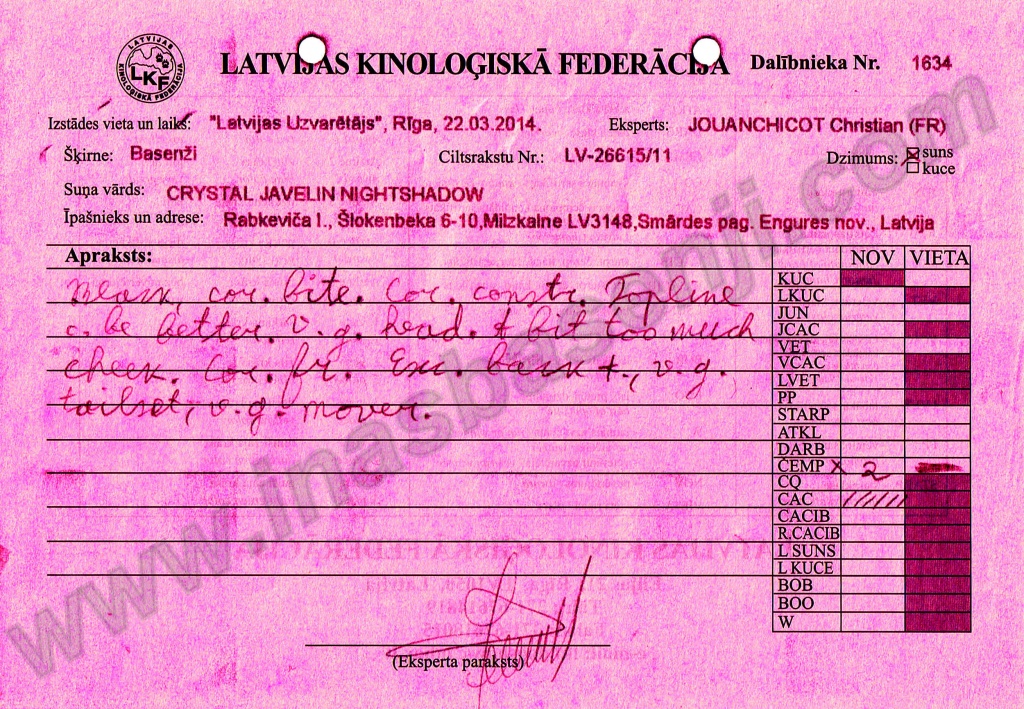 LATVIJAS KINOLOĢISKĀ FEDERĀCIJA
LKF
LATVIJAS KINOLOĢISKĀ FEDERĀCIJA Dalībnieka Nr. 1634
Izstādes vieta un laiks: "Latvijas Uzvarētājs", Rīga, 22.03.2014. Eksperts: JOUANCHICOT Christian (FR)
Šķirne: Basenži Ciltsrakstu Nr.: LV-26615/11 Dzimums: suns
kuce
Suņa vārds: CRYSTAL JAVELIN NIGHTSHADOW
Īpašnieks un adrese: Rabkeviča I., Šlokenbeka 6-10,Milzkalne LV3148,Smārdes pag. Engures nov., Latvija
Apraksts: NOV VIETA
cor. bite. Cor. constr. Topline
c. be better. v.g. head. A bit too much
cheek. Cor. fr. Exc. back t., v.g.
tailset, v.g. mover.
KUC
LKUC
JUN
JCAC
VET
VCAC
LVET
PP
STARP
ATKL
DARB
ČEMP x 2
CQ
CAC
CACIB
R.CACIB
L SUNS
L KUCE
BOB
BOO
W
(Eksperta paraksts)
www.inasbasenji.com